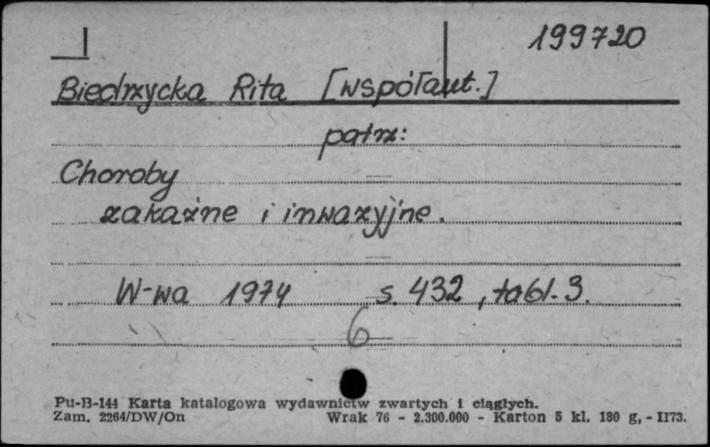 199720
Biedrzycka Rita [współaut.]
patrz:
Choroby
zakaźne i inwazyjne.
W-wa 1974 s. 432, tabl. 3.
6
Pu-B-144 Karta katalogowa wydawnictw zwartych i ciągłych.
Zam. 2264/DW/On Wrak 76 - 2.300.000 - Karton 5 kl. 180 g, - II73.